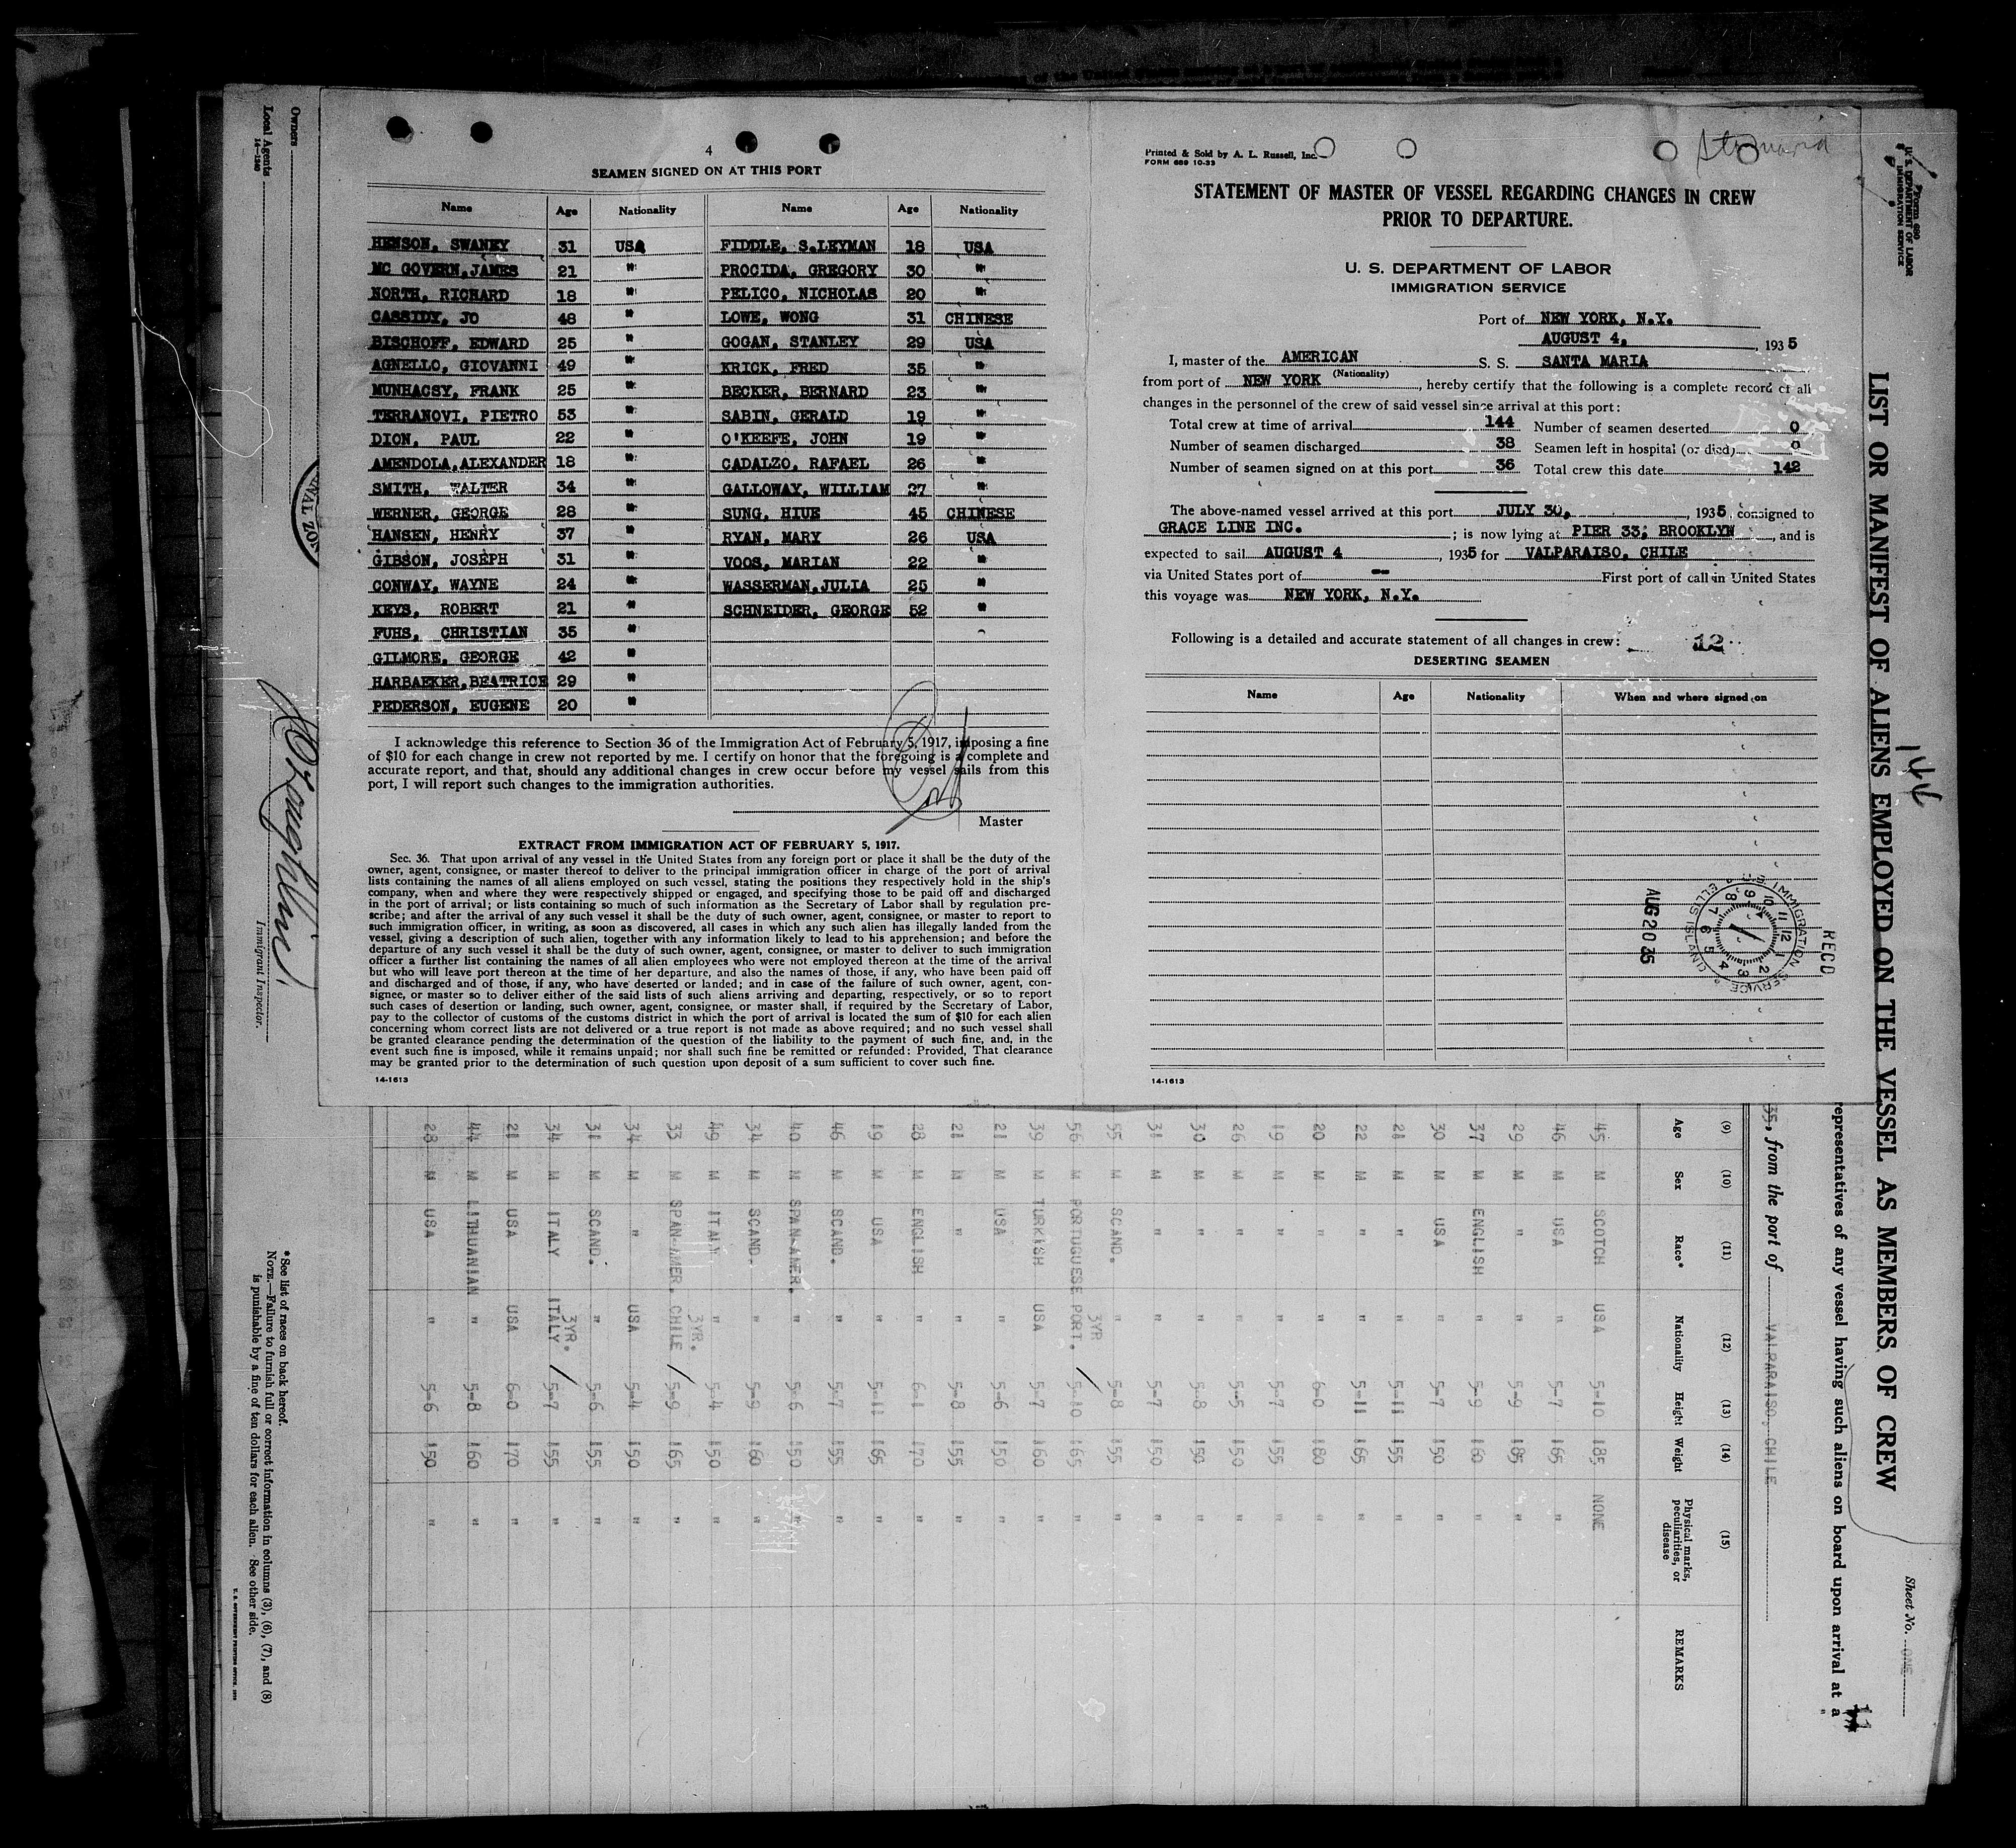 4
SEAMEN SIGNED ON AT THIS PORT
Name Age Nationality Name Age Nationality
HENSON, SWANEY 31 USA FIDDLE, S.LEYMAN 18 USA
MC GOVERN,JAMES 21 " PROCIDA, GREGORY 30 "
NORTH, RICHARD 18 " PELICO, NICHOLAS 20 "
CASSIDY, JO 48 " LOWE, WONG 31 CHINESE
BISCHOFF, EDWARD 25 " GOGAN, STANLEY 29 USA
AGNELLO, GIOVANNI 49 " KRICK, FRED 35 "
MUNHACSY, FRANK 25 " BECKER, BERNARD 23 "
TERRANOVI, PIETRO 53 " SABIN, GERALD 19 "
DION, PAUL 22 " O'KEEFE, JOHN 19 "
AMENDOLA,ALEXANDER 18 " CADALZO, RAFAEL 26 "
SMITH, WALTER 34 " GALLOWAY, WILLIAM 27 "
WERNER, GEORGE 28 " SUNG, HIUE 45 CHINESE
HANSEN, HENRY 37 " RYAN, MARY 26 USA
GIBSON, JOSEPH 31 " VOOS, MARIAN 22 "
CONWAY, WAYNE 24 " WASSERMAN,JULIA 25 "
KEYS, ROBERT 21 " SCHNEIDER, GEORGE 52 "
FUHS, CHRISTIAN 35 "
GILMORE, GEORGE 42 "
HARBAEKER,BEATRICE 29 "
PEDERSON, EUGENE 20 "
I acknowledge this reference to Section 36 of the Immigration Act of February 5, 1917, imposing a fine
of $10 for each change in crew not reported by me. I certify on honor that the foregoing is a complete and
accurate report, and that, should any additional changes in crew occur before my vessel sails from this
port, I will report such changes to the immigration authorities.
Master
EXTRACT FROM IMMIGRATION ACT OF FEBRUARY 5, 1917.
Sec. 36. That upon arrival of any vessel in the United States from any foreign port or place it shall be the duty of the
owner, agent, consignee, or master thereof to deliver to the principal immigration officer in charge of the port of arrival
lists containing the names of all aliens employed on such vessel, stating the positions they respectively hold in the ship's
company, when and where they were respectively shipped or engaged, and specifying those to be paid off and discharged
in the port of arrival; or lists containing so much of such information as the Secretary of Labor shall by regulation pre-
scribe; and after the arrival of any such vessel it shall be the duty of such owner, agent, consignee, or master to report to
such immigration officer, in writing, as soon as discovered, all cases in which any such alien has illegally landed from the
vessel, giving a description of such alien, together with any information likely to lead to his apprehension; and before the
departure of any such vessel it shall be the duty of such owner, agent, consignee, or master to deliver to such immigration
officer a further list containing the names of all alien employees who were not employed thereon at the time of the arrival
but who will leave port thereon at the time of her departure, and also the names of those, if any, who have been paid off
and discharged and of those, if any, who have deserted or landed; and in case of the failure of such owner, agent, con-
signee, or master so to deliver either of the said lists of such aliens arriving and departing, respectively, or so to report
such cases of desertion or landing, such owner, agent, consignee, or master shall, if required by the Secretary of Labor,
pay to the collector of customs of the customs district in which the port of arrival is located the sum of $10 for each alien
concerning whom correct lists are not delivered or a true report is not made as above required; and no such vessel shall
be granted clearance pending the determination of the question of the liability to the payment of such fine, and, in the
event such fine is imposed, while it remains unpaid; nor shall such fine be remitted or refunded: Provided, That clearance
may be granted prior to the determination of such question upon deposit of a sum sufficient to cover such fine.
14-1613
Printed & Sold by A. L. Russell, Inc.
FORM 689 10-33
STATEMENT OF MASTER OF VESSEL REGARDING CHANGES IN CREW
PRIOR TO DEPARTURE.
U. S. DEPARTMENT OF LABOR
IMMIGRATION SERVICE
Port of NEW YORK, N.Y.
AUGUST 4, , 1935
I, master of the AMERICAN S. S. SANTA MARIA
(Nationality)
from port of NEW YORK , hereby certify that the following is a complete record of all
changes in the personnel of the crew of said vessel since arrival at this port:
Total crew at time of arrival 144 Number of seamen deserted 0
Number of seamen discharged 38 Seamen left in hospital (or died) 0
Number of seamen signed on at this port 36 Total crew this date 142
The above-named vessel arrived at this port JULY 30, , 1935, consigned to
GRACE LINE INC. ; is now lying at PIER 33; BROOKLYN , and is
expected to sail AUGUST 4 , 1935 for VALPARAISO, CHILE
via United States port of -- First port of call in United States
this voyage was NEW YORK, N.Y.
Following is a detailed and accurate statement of all changes in crew: 12
DESERTING SEAMEN
Name Age Nationality When and where signed on
RECD
IMMIGRATION SERVICE ELLIS ISLAND
12 1 2 3 4 5 6 7 8 9 10 11
AUG 20 35
14-1613
Form 680
U. S. DEPARTMENT OF LABOR
IMMIGRATION SERVICE
LIST OR MANIFEST OF ALIENS EMPLOYED ON THE VESSEL AS MEMBERS OF CREW
144
Sheet No. ONE
representatives of any vessel having such aliens on board upon arrival at a
35, from the port of VALPARAISO, CHILE
(9) (10) (11) (12) (13) (14) (15)
Age Sex Race* Nationality Height Weight Physical marks, peculiarities, or disease REMARKS
45 M SCOTCH USA 5-10 185 NONE
46 M USA " 5-7 165 "
29 M " " 5-9 185 "
37 M ENGLISH " 5-9 160 "
30 M USA " 5-7 150 "
21 M " " 5-11 155 "
22 M " " 5-11 165 "
20 M " " 6-0 180 "
19 M " " 5-7 155 "
26 M " " 5-5 150 "
30 M " " 5-8 150 "
31 M " " 5-7 150 "
55 M SCAND. " 5-8 155 "
56 M PORTUGUESE PORT. 3YR 5-10 165 "
39 M TURKISH USA 5-7 160 "
21 M USA " 5-6 150 "
21 M " " 5-8 155 "
28 M ENGLISH " 6-1 170 "
19 M USA " 5-11 165 "
46 M SCAND. " 5-7 155 "
40 M SPAN-AMER. " 5-6 150 "
34 M SCAND. " 5-9 160 "
49 M ITALY " 5-4 150 "
33 M SPAN-AMER. CHILE 3YR. 5-9 165 "
34 M " USA 5-4 150 "
31 M SCAND. " 5-6 155 "
34 M ITALY ITALY 3YR. 5-7 155 "
21 M USA USA 6-0 170 "
44 M LITHUANIAN " 5-8 160 "
28 M USA " 5-6 150 "
Owners
Local Agents
14-1240
Immigrant Inspector.
* See list of races on back hereof.
NOTE.—Failure to furnish full or correct information in columns (3), (6), (7), and (8)
is punishable by a fine of ten dollars for each alien. See other side.
U. S. GOVERNMENT PRINTING OFFICE